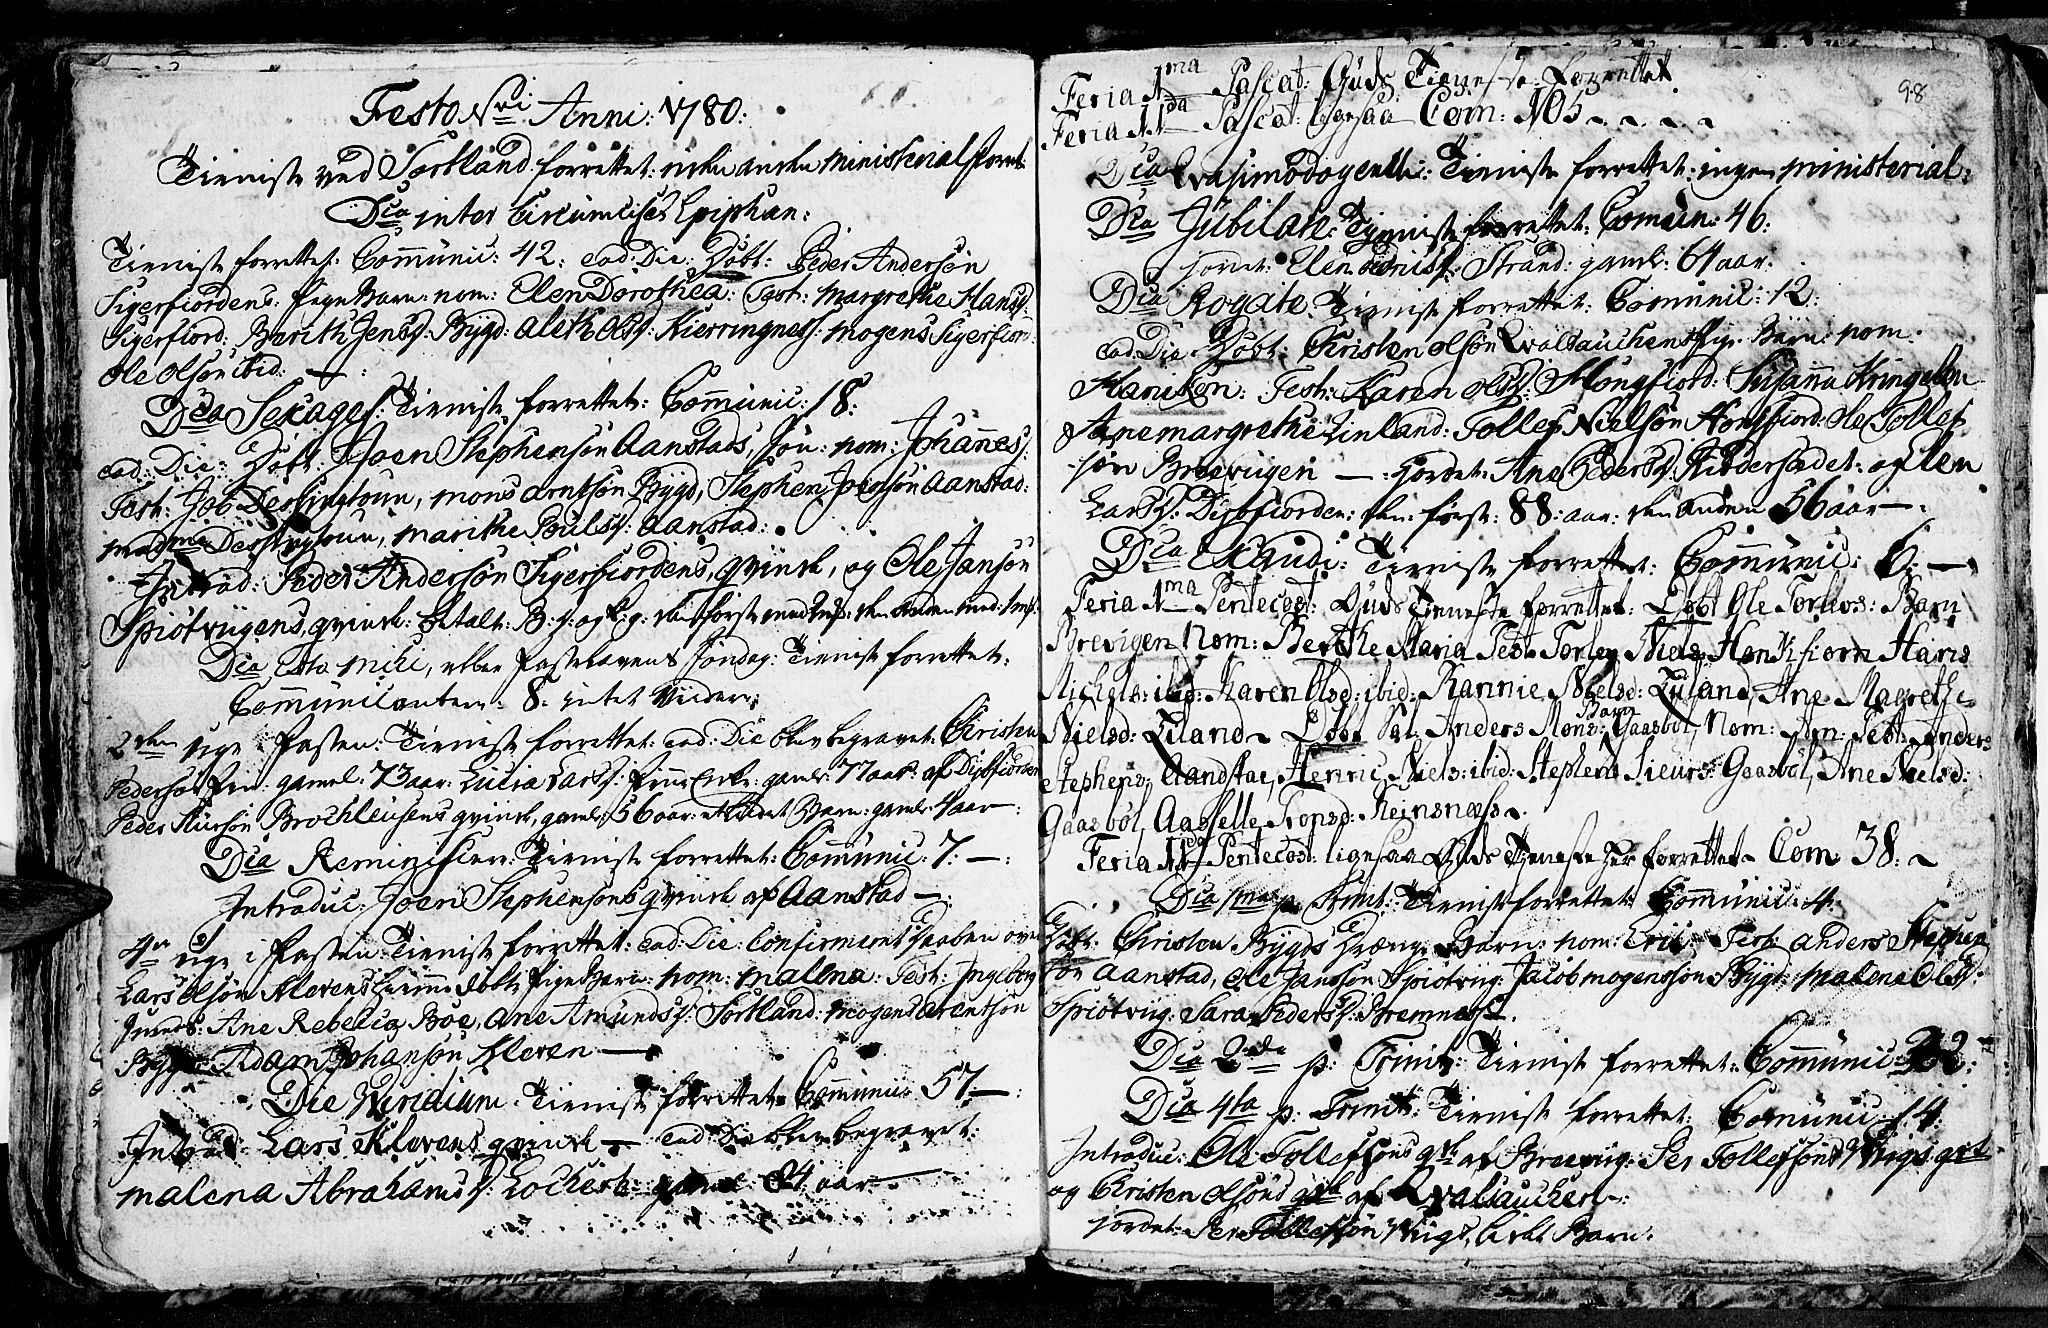 Festo Nvi Anni: 1780:
Tieniste ved Sortland forrettet: uden anden ministerial forret:
Dca inter Circumcis: Epiphan:
Tieniste forrettet: Communic: 42: ead: Die: Døbt: Peder Andersøn
Sigerfiordens: Pige Barn: nom: Elen Dorothea: Test: Margrethe Hansd:
Sigerfiord: Berith Jensd: Bygd: Aleth Olsd: Kierringnes: Mogens Sigerfiord:
Ole Olsøn ibid: —
Dca Sexages: Tieniste forrettet: Communic: 18:
ead: Die: Døbt: Joen Stephensøn Aanstads, søn: nom: Johannes:
Test: Job Dessington, Mons Arntsøn Bygd, Stephen Joensøn Aanstad:
mad:me Dessington, Marithe Poulsd: Aanstad:
Introd: Peder Andersøn Sigerfiordens, qvinde, og Ole Jansøn
Spiotviigens, qvinde: betalt: B: g: og K: g: den første med 2 , den anden med: 1
Dca Esto mihi, eller Fastelavens Søndag: Tieniste forrettet:
Communicantere: 8: intet viidere:
2den uge i Fasten: Tieniste forrettet: ead: Die blev begravet: Christen
Pedersøn gamel: 73 aar: Lucia Larsd: Enke: gaml: 77 aar: af Digbfiorden
Peder Siursøn Brochløsens qvinde, gaml: 56 aar: et lidet Barn: gaml: 1 aar —:
Dca Reminiscere: Tieniste forrettet: Communic: 7: —:
Introduc: Joen Stephensøns qvinde af Aanstad —:
4de uge i Fasten: Tieniste forrettet: ead: Die: Confirmeret Daaben over
Lars Olsøn Klevens hiemme døbt Pige Barn: nom: Malena: Test: Ingeborg
Ane Rebecca Bøe, Ane Amundsd: Sortland: Mogens Arentsøn
Bygd: Adam Johansøn Kleven —
Die Viridium: Tieniste forrettet: Communic: 57 —:
Introd: Lars Klevens qvinde — ead: Die blev begravet:
Malena Abrahamsd: Lochert: gaml: 84 aar —
98
Feria 1ma Pascat: Guds Tieneste forrettet
Feria 2da Pascat: ligesaa Com: 105
Dca Qvasimodogeniti: Tieniste forrettet: ingen ministerial:
Dca Jubilate: Tieniste forrettet: Comun: 46:
jordet: Elen Strand: gaml: 64 aar:
Dca Rogate: Tieniste forrettet: Comunic: 12:
ead: Die: Døbt: Christen Olsøn Qvalsauchens Pige Barn: nom:
Maricken: Test: Karen Olsd: Hongfiord: Susanna Kringelen
Anemargrethe Zinland: Tollef Nielsøn Hongfiord: Ole Tollef-
søn Breevigen —: jordet: Ane Pedersd: og Elen
Larsd: Digbfiorden: den: først: 88: aar: den anden 56 aar —:
Dca Exaudi: Tieniste forrettet: Communic: 6: —
Feria 1ma Pentecost: Guds Tieneste forrettet: Døbt Ole Torlevs: Barn
Brevigen Nom: Berthe Maria Test Torlev Niels: Honkfiorn Hans
Michels: ibid: Karen Olsd: ibid: Rannie Nielsd: Ziland, Ane Magrethe
Nielsd: Ziland ~ Døbt Sal: Anders Mons: Barn Gaasbøl, Nom: An: Test: Anders
Stephens: Aandstae, Henric Niels: ibid: Stephens Sieurs: Gaasbøl, Ane Nielsd:
Gaasbøl, Aasselle Tronsd: Reinsnæs ~.
Feria 2da Pentecost: ligesaa Guds Tieneste her forrettet ~ Com 38: ~
Dca 1ma p: Trinit: Tieniste forrettet: Communic: 4:
Døbt: Christen Bygds Drænge Barn: nom: Erik: Test: Anders Stephen
søn Aanstad, Ole Jansøn Spiotviig: Jacob Mogenssøn Bygd: Malena Olesd:
Spiotviig: Sara Pedersd: Bremnes.
Dca 2da p: Trinit: Tieniste forrettet: Communic:
Dca 4ta p: Trinit: Tieniste forrettet: Comunic: 14:
Introduc: Ole Tollefsøns qde af Breeviig: Per Tollefsøns Viigs qde
og Christen Olsøns qde af Qvalsauchen —:
jordet: Per Tollefsøn Viigs, lidet Barn: